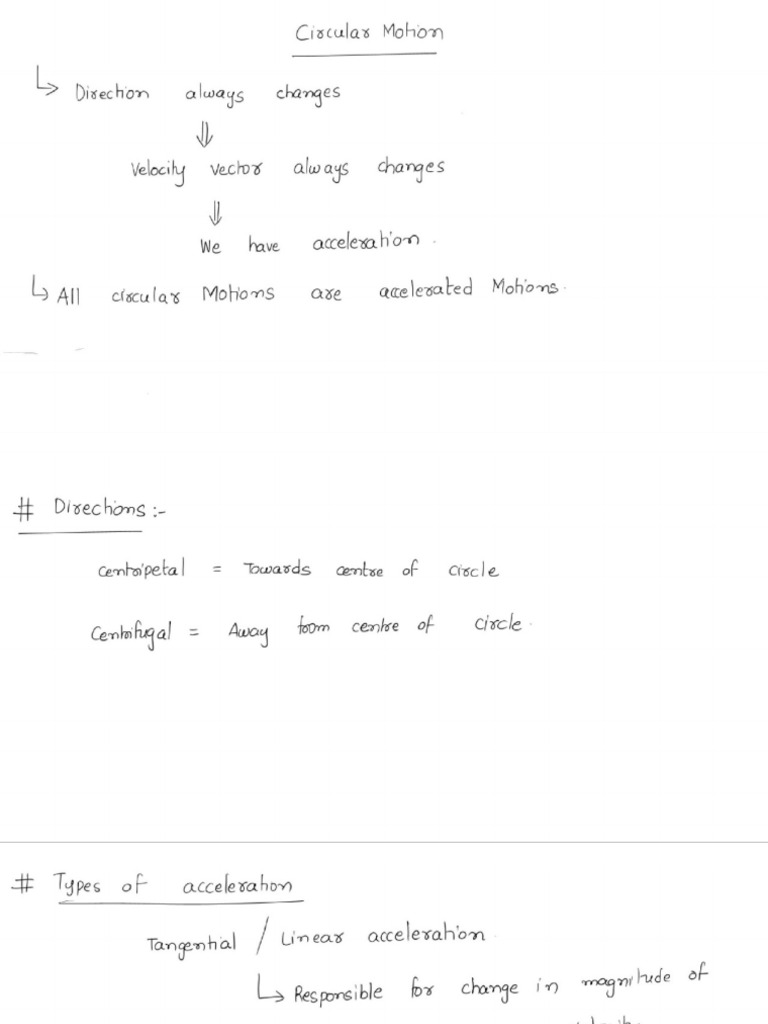 Circular Motion
↳ Direction always changes
⇓
Velocity vector always changes
⇓
We have acceleration.
↳ All circular Motions are accelerated Motions.
# Directions :-
Centripetal = Towards centre of circle
Centrifugal = Away from centre of circle.
# Types of acceleration
Tangential / Linear acceleration
↳ Responsible for change in magnitude of